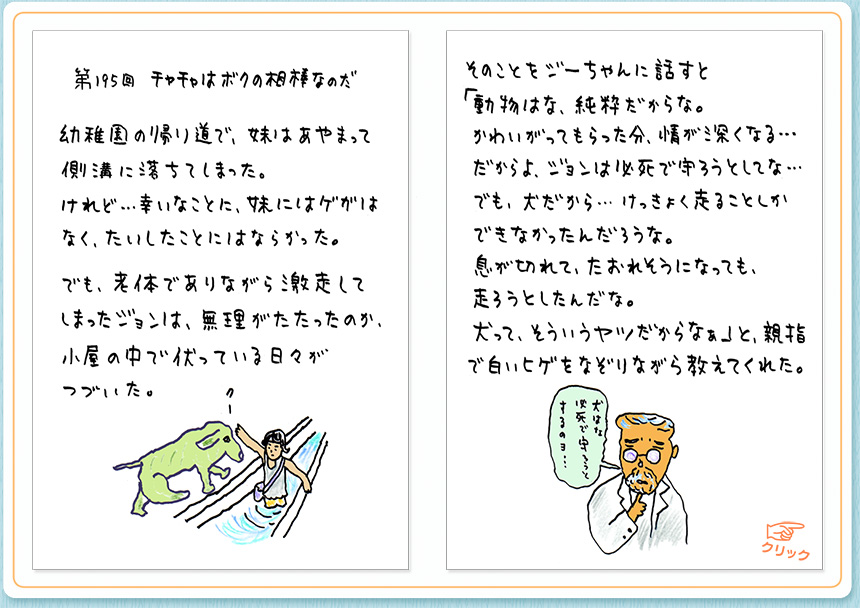 第195回 チャチャはボクの相棒なのだ
幼稚園の帰り道で、妹はあやまって
側溝に落ちてしまった。
けれど…幸いなことに、妹にはケガは
なく、たいしたことにはならかった。
でも、老体でありながら激走して
しまったジョンは、無理がたたったのか、
小屋の中で伏っている日々が
つづいた。
そのことをジーちゃんに話すと
「動物はな、純粋だからな。
かわいがってもらった分、情が深くなる…
だからよ、ジョンは必死で守ろうとしてな…
でも、犬だから…けっきょく走ることしか
できなかったんだろうな。
息が切れて、たおれそうになっても、
走ろうとしたんだな。
犬って、そういうヤツだからなぁ」と、親指
で白いヒゲをなぞりながら教えてくれた。
犬はな
必死で守ろうと
するのヨ…
クリック